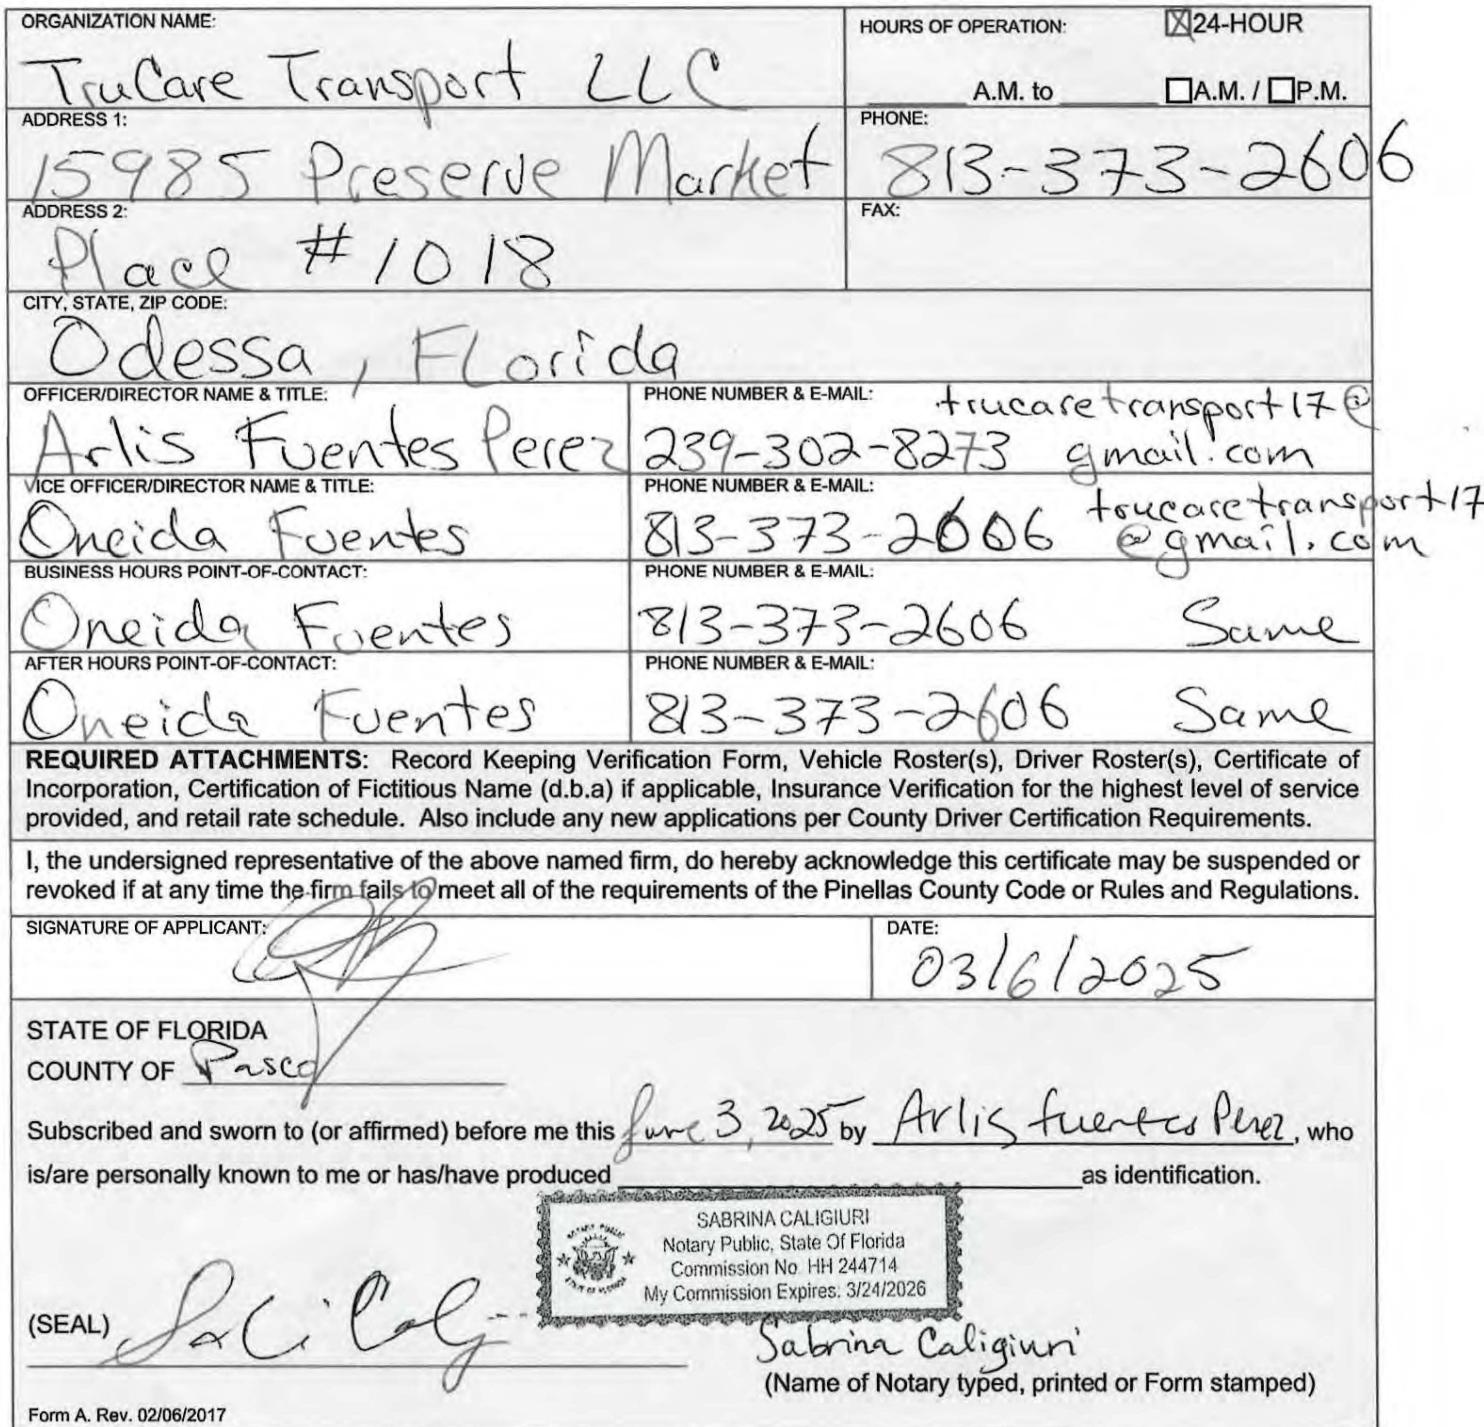 ORGANIZATION NAME:
TruCare Transport LLC
HOURS OF OPERATION: ☒24-HOUR
______ A.M. to ______ ☐A.M. / ☐P.M.
ADDRESS 1:
15985 Preserve Market
PHONE:
813-373-2606
ADDRESS 2:
Place #1018
FAX:
CITY, STATE, ZIP CODE:
Odessa, Florida
OFFICER/DIRECTOR NAME & TITLE:
Arlis Fuentes Perez
PHONE NUMBER & E-MAIL: trucaretransport17@
239-302-8273 gmail.com
VICE OFFICER/DIRECTOR NAME & TITLE:
Oneida Fuentes
PHONE NUMBER & E-MAIL: trucaretransport17
813-373-2606 @gmail.com
BUSINESS HOURS POINT-OF-CONTACT:
Oneida Fuentes
PHONE NUMBER & E-MAIL:
813-373-2606 Same
AFTER HOURS POINT-OF-CONTACT:
Oneida Fuentes
PHONE NUMBER & E-MAIL:
813-373-2606 Same
REQUIRED ATTACHMENTS: Record Keeping Verification Form, Vehicle Roster(s), Driver Roster(s), Certificate of
Incorporation, Certification of Fictitious Name (d.b.a) if applicable, Insurance Verification for the highest level of service
provided, and retail rate schedule. Also include any new applications per County Driver Certification Requirements.
I, the undersigned representative of the above named firm, do hereby acknowledge this certificate may be suspended or
revoked if at any time the firm fails to meet all of the requirements of the Pinellas County Code or Rules and Regulations.
SIGNATURE OF APPLICANT:
DATE:
03/6/2025
STATE OF FLORIDA
COUNTY OF Pasco
Subscribed and sworn to (or affirmed) before me this June 3, 2025 by Arlis fuentes Perez, who
is/are personally known to me or has/have produced ______ as identification.
SABRINA CALIGIURI
Notary Public, State Of Florida
Commission No. HH 244714
My Commission Expires: 3/24/2026
NOTARY PUBLIC
STATE OF FLORIDA
(SEAL)
Sabrina Caligiuri
(Name of Notary typed, printed or Form stamped)
Form A. Rev. 02/06/2017